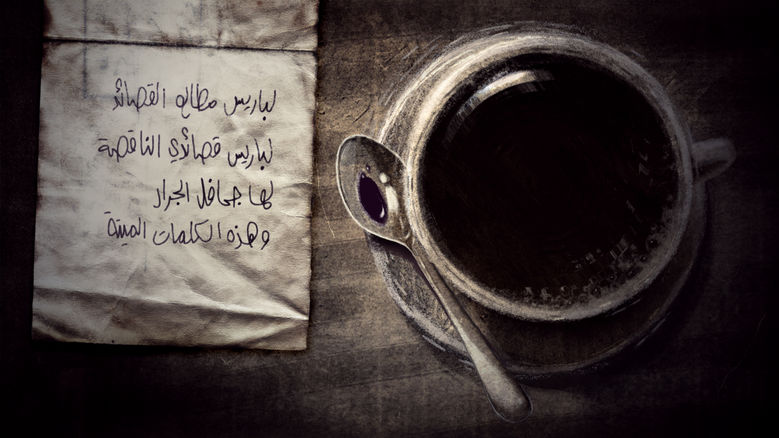 لباريس مطالع القصائد
لباريس قصائدي الناقصة
لها جحافل الجراد
وهذه الكلمات الميتة